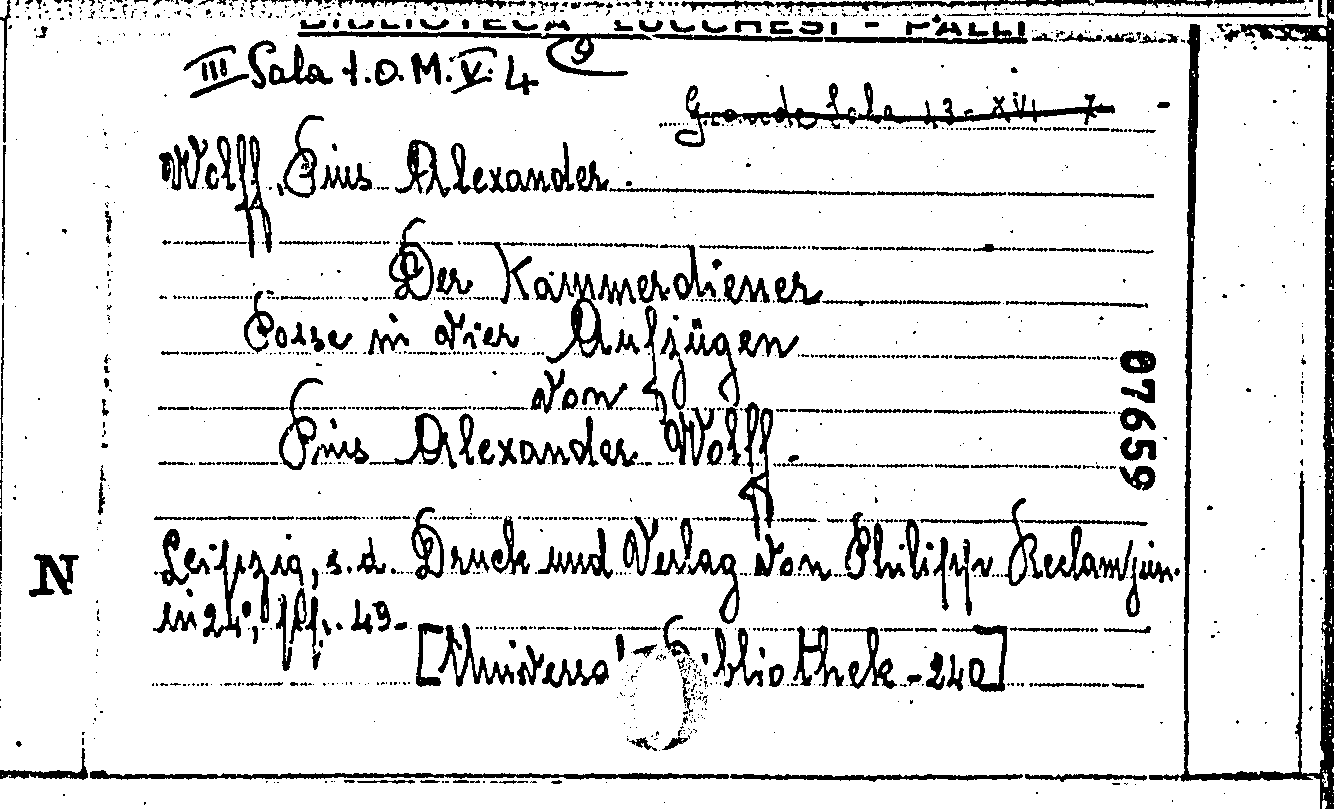 BIBLIOTECA LUCCHESI - PALLI
III Sala 1.O.M.V.4 (9
Grande Sala 13-XVI 7 -
Wolff, Pius Alexander.
Der Kammerdiener
Posse in vier Aufzügen
von
Pius Alexander Wolff.
07659
N
Leipzig, s.d. Druck und Verlag von Philipp Reclam jun.
in 24°, pp. 49-
[Universal Bibliothek - 240]